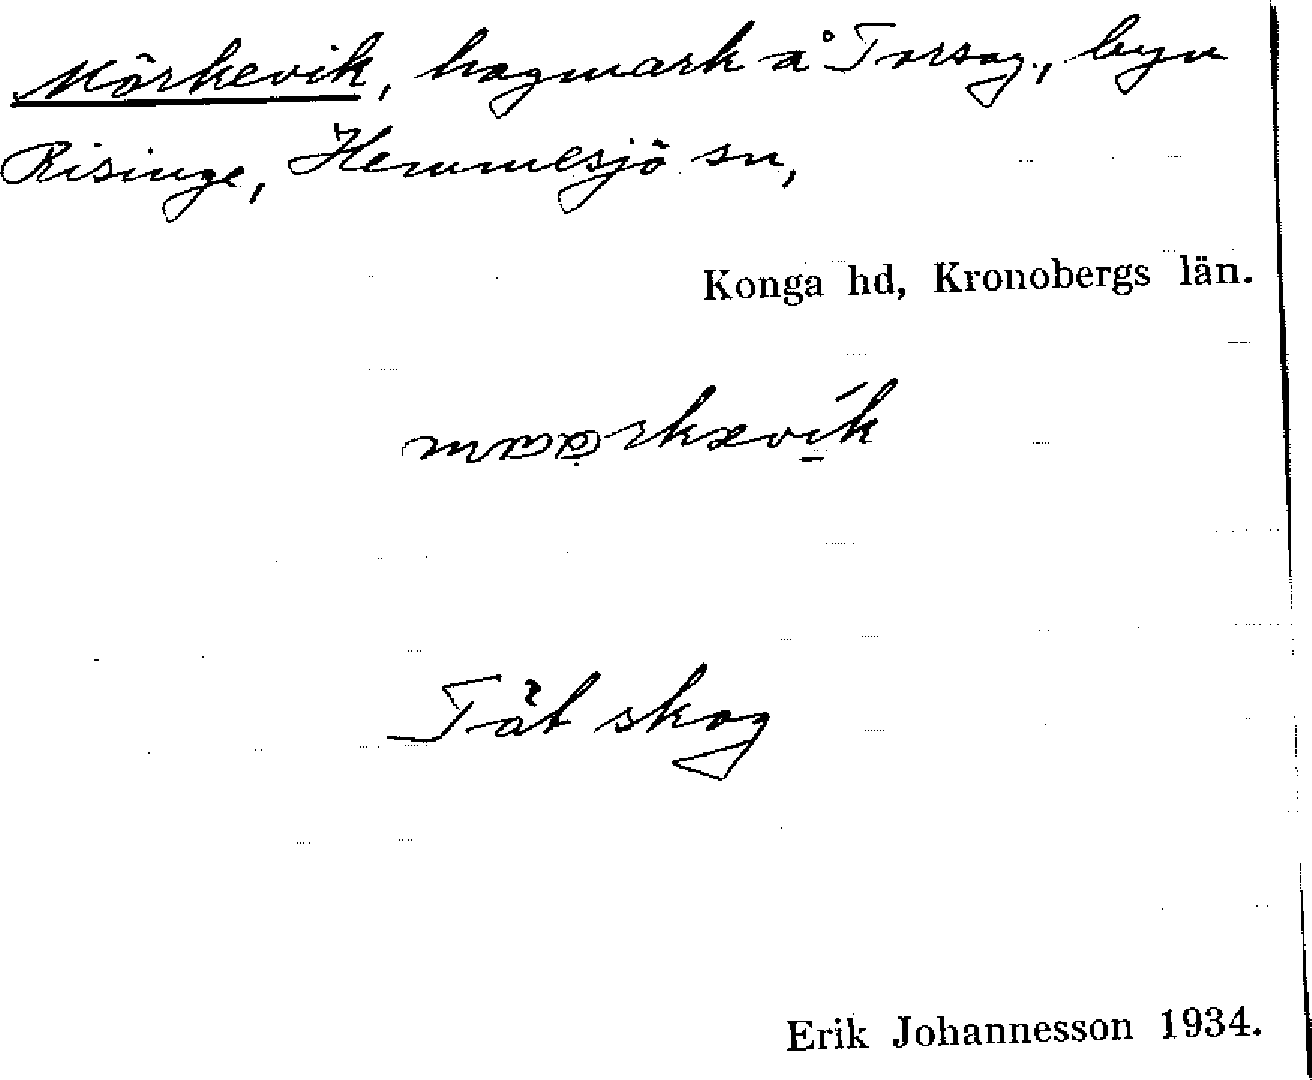 Mörkevik, hagmark å Torsag., byn
Risinge, Hemmesjö sn,
Konga hd, Kronobergs län.
Tät skog
Erik Johannesson 1934.